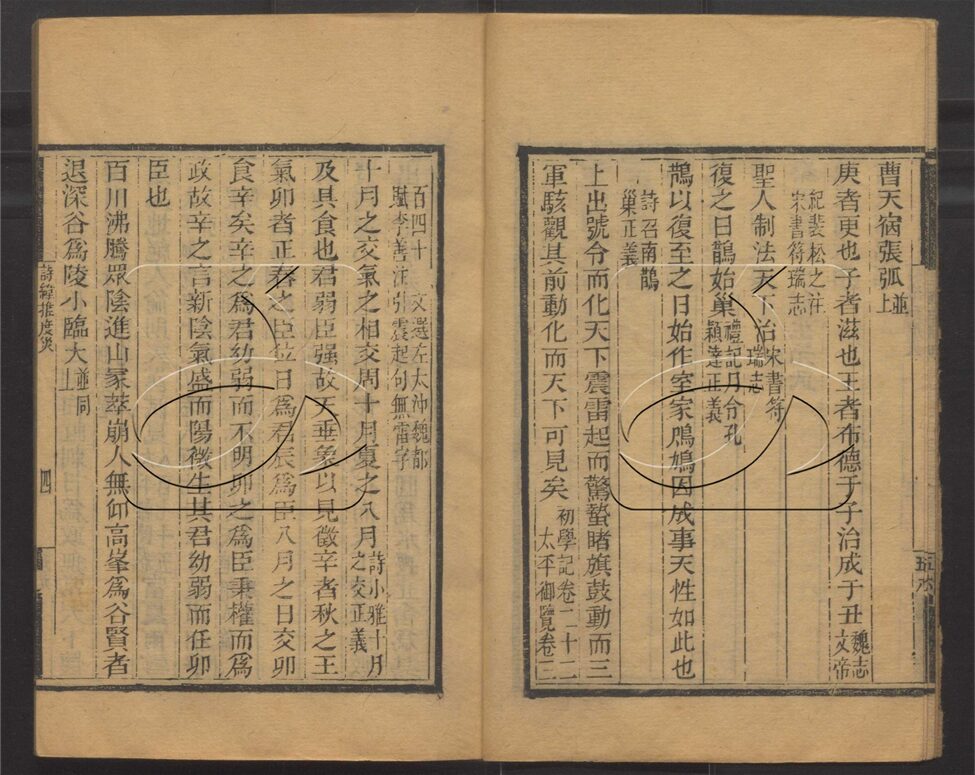 曹天宿張弧並上
庚者更也子者滋也王者布德于子治成于丑魏志文帝
紀裴松之注宋書符瑞志
聖人制法天下治宋書符瑞志
復之日鵲始巢禮記月令孔穎達正義
鵲以復至之日始作室家鳲鳩因成事天性如此也
詩召南鵲巢正義
上出號令而化天下震雷起而驚蟄睹旗鼓動而三
軍駭觀其前動化而天下可見矣初學記卷二十二太平御覽卷三
百四十 文選左太沖魏都賦李善注引震起句無雷字
十月之交氣之相交周十月夏之八月詩小雅十月之交正義
及具食也君弱臣强故天垂象以見徵辛者秋之王
氣卯者正春之臣位日為君辰為臣八月之日交卯
食辛矣辛之為君幼弱而不明卯之為臣秉權而為
政故辛之言新陰氣盛而陽微生其君幼弱而任卯
臣也
百川沸騰眾陰進山冢萃崩人無仰高峯為谷賢者
退深谷為陵小臨大並同上
詩緯推度災
四